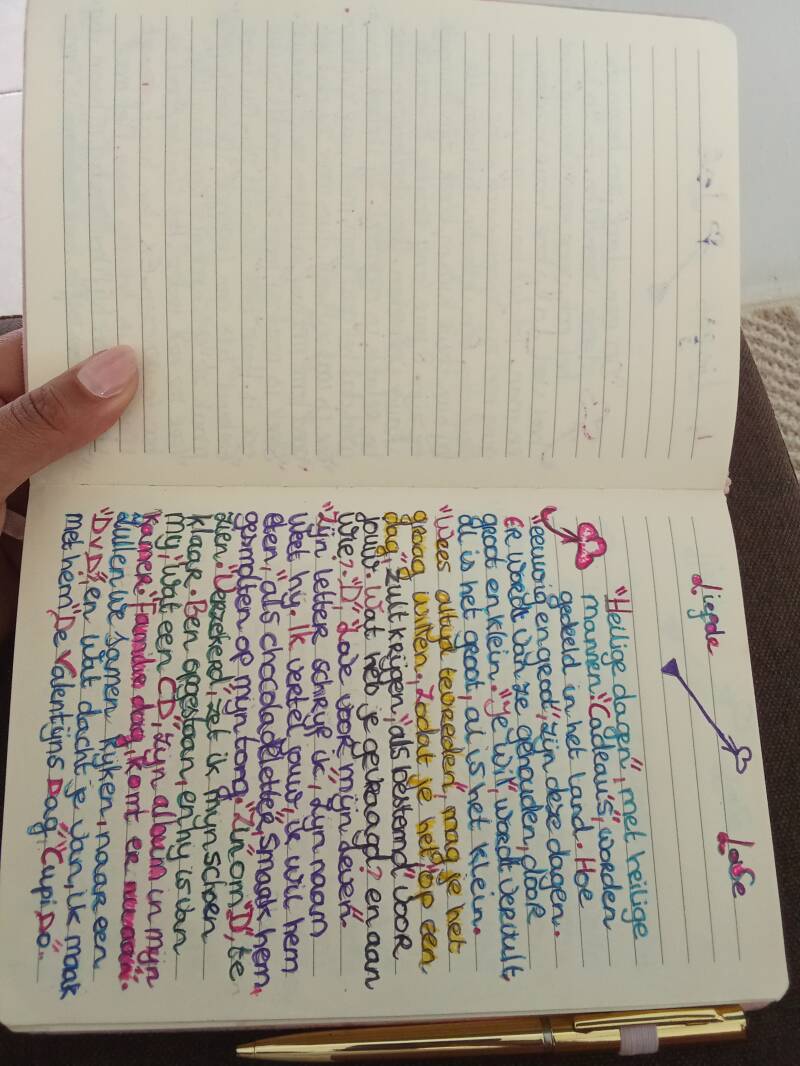 Liefde Lafe
"Heilige dagen", met heilige
mannen. "Cadeaus", worden
gedeeld in het land. Hoe
"eeuwig en groot", zijn deze dagen.
Er wordt van ze gehouden, door
groot en klein. "Je wil", wordt vervult,
al is het groot, al is het klein.
"Wees altijd tevreden", mag je het
graag willen. Zodat je het "op een
dag", zult krijgen, "als bestemd" voor
jouw. Wat heb je gevraagd? en aan
wie? "D", Love voor mijn leven".
"Zijn letter schrijf ik, zijn naam
weet hij. Ik vertel jouw, ik wil hem
eten, "als chocoladeletter", smaak hem,
gesmolten op mijn tong. "Zin om "D", te
zien. "Verzekerd, zet ik mijn schoen
klaar. Ben opgestaan, en hij is van
mij, wat een CD", zijn album in mijn
kamer. "Familie dag, komt er
zullen we samen kijken, naar een
"DVD", en wat dacht je van, ik maak
met hem "De Valentijns Dag, "CupiDo".